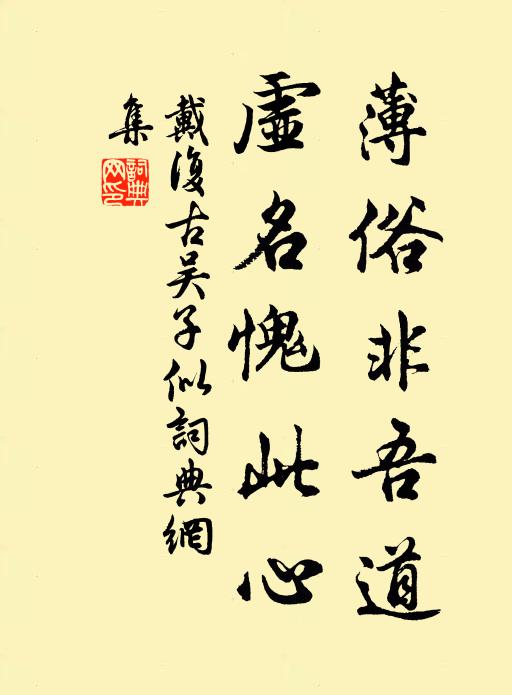 薄俗非吾道
虛名愧此心
戴復古吴子似詞典網
集
詞典网印